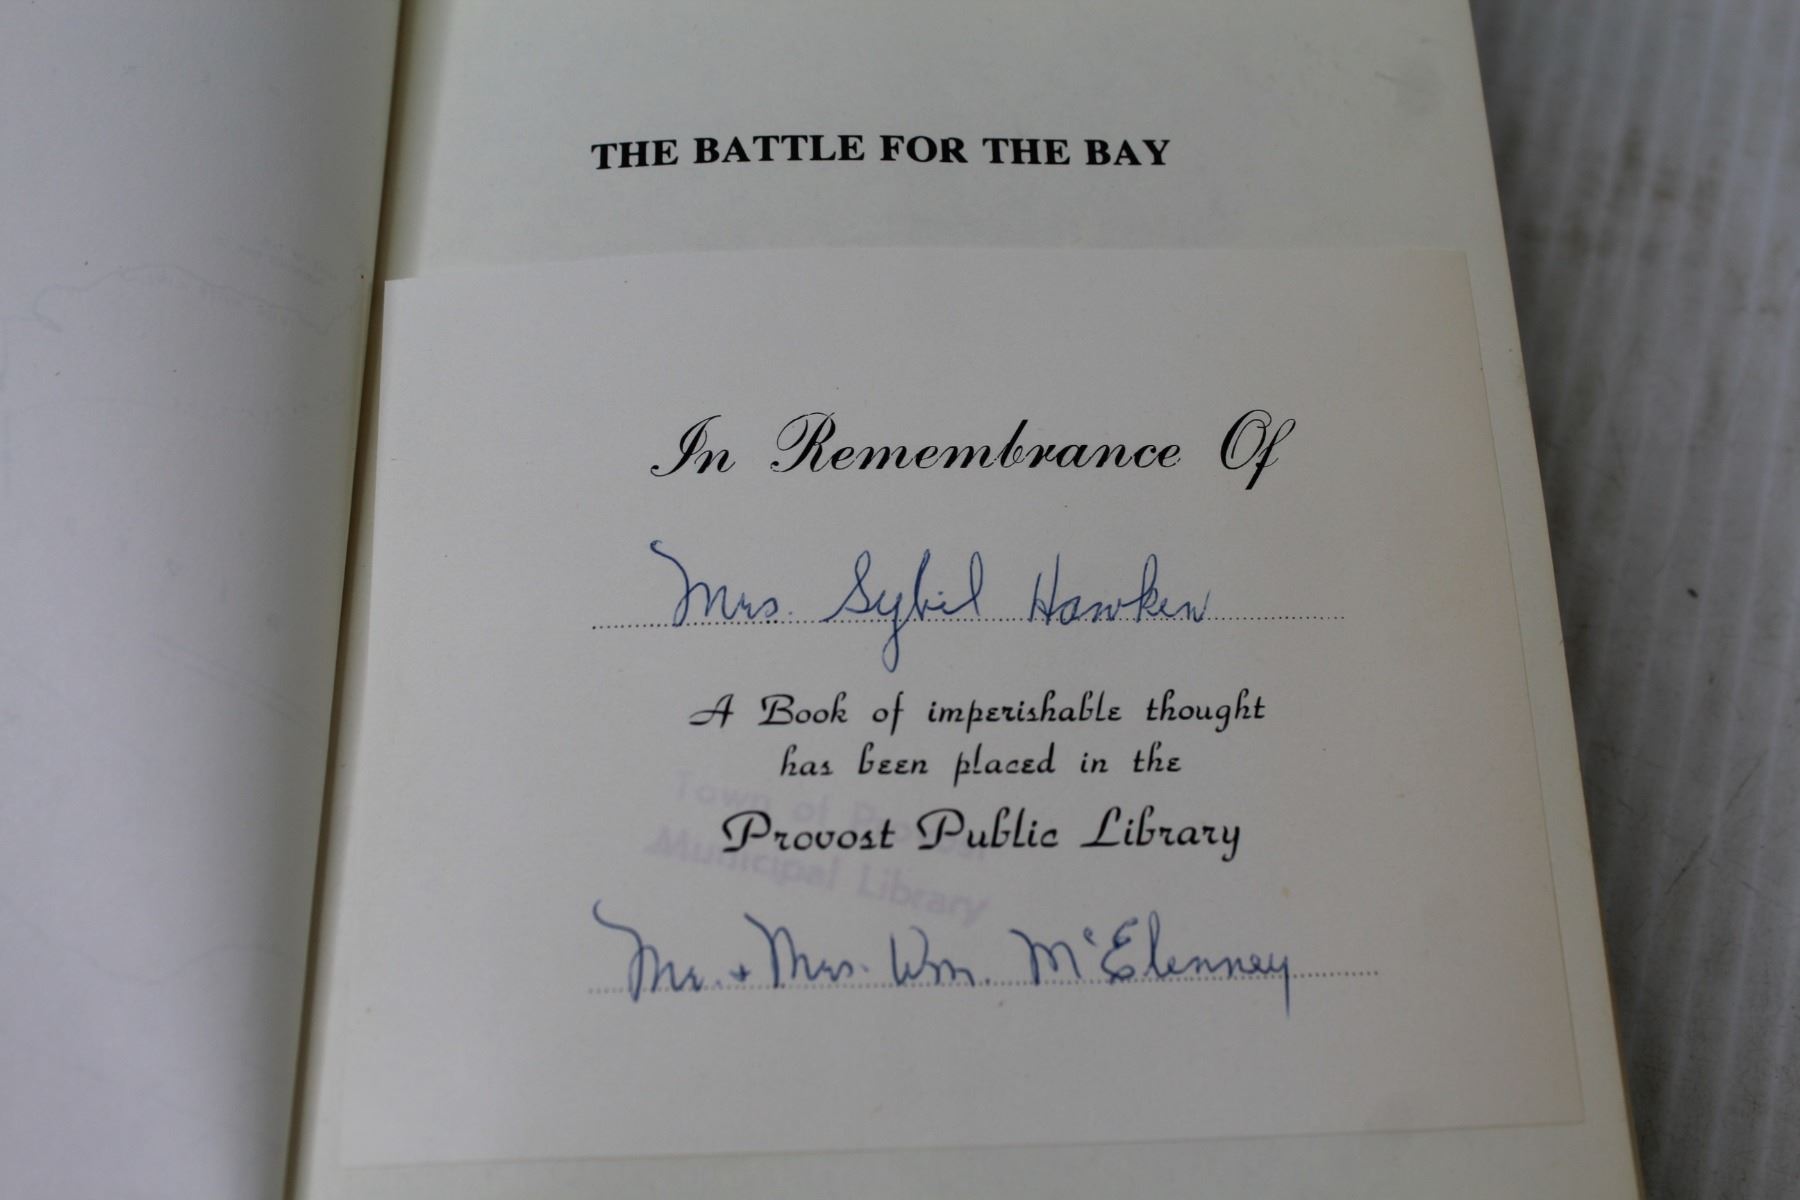 THE BATTLE FOR THE BAY
In Remembrance Of
Mrs. Sybil Hawken
A Book of imperishable thought
has been placed in the
Town of Provost
Provost Public Library
Municipal Library
Mr. + Mrs. Wm. McElenney